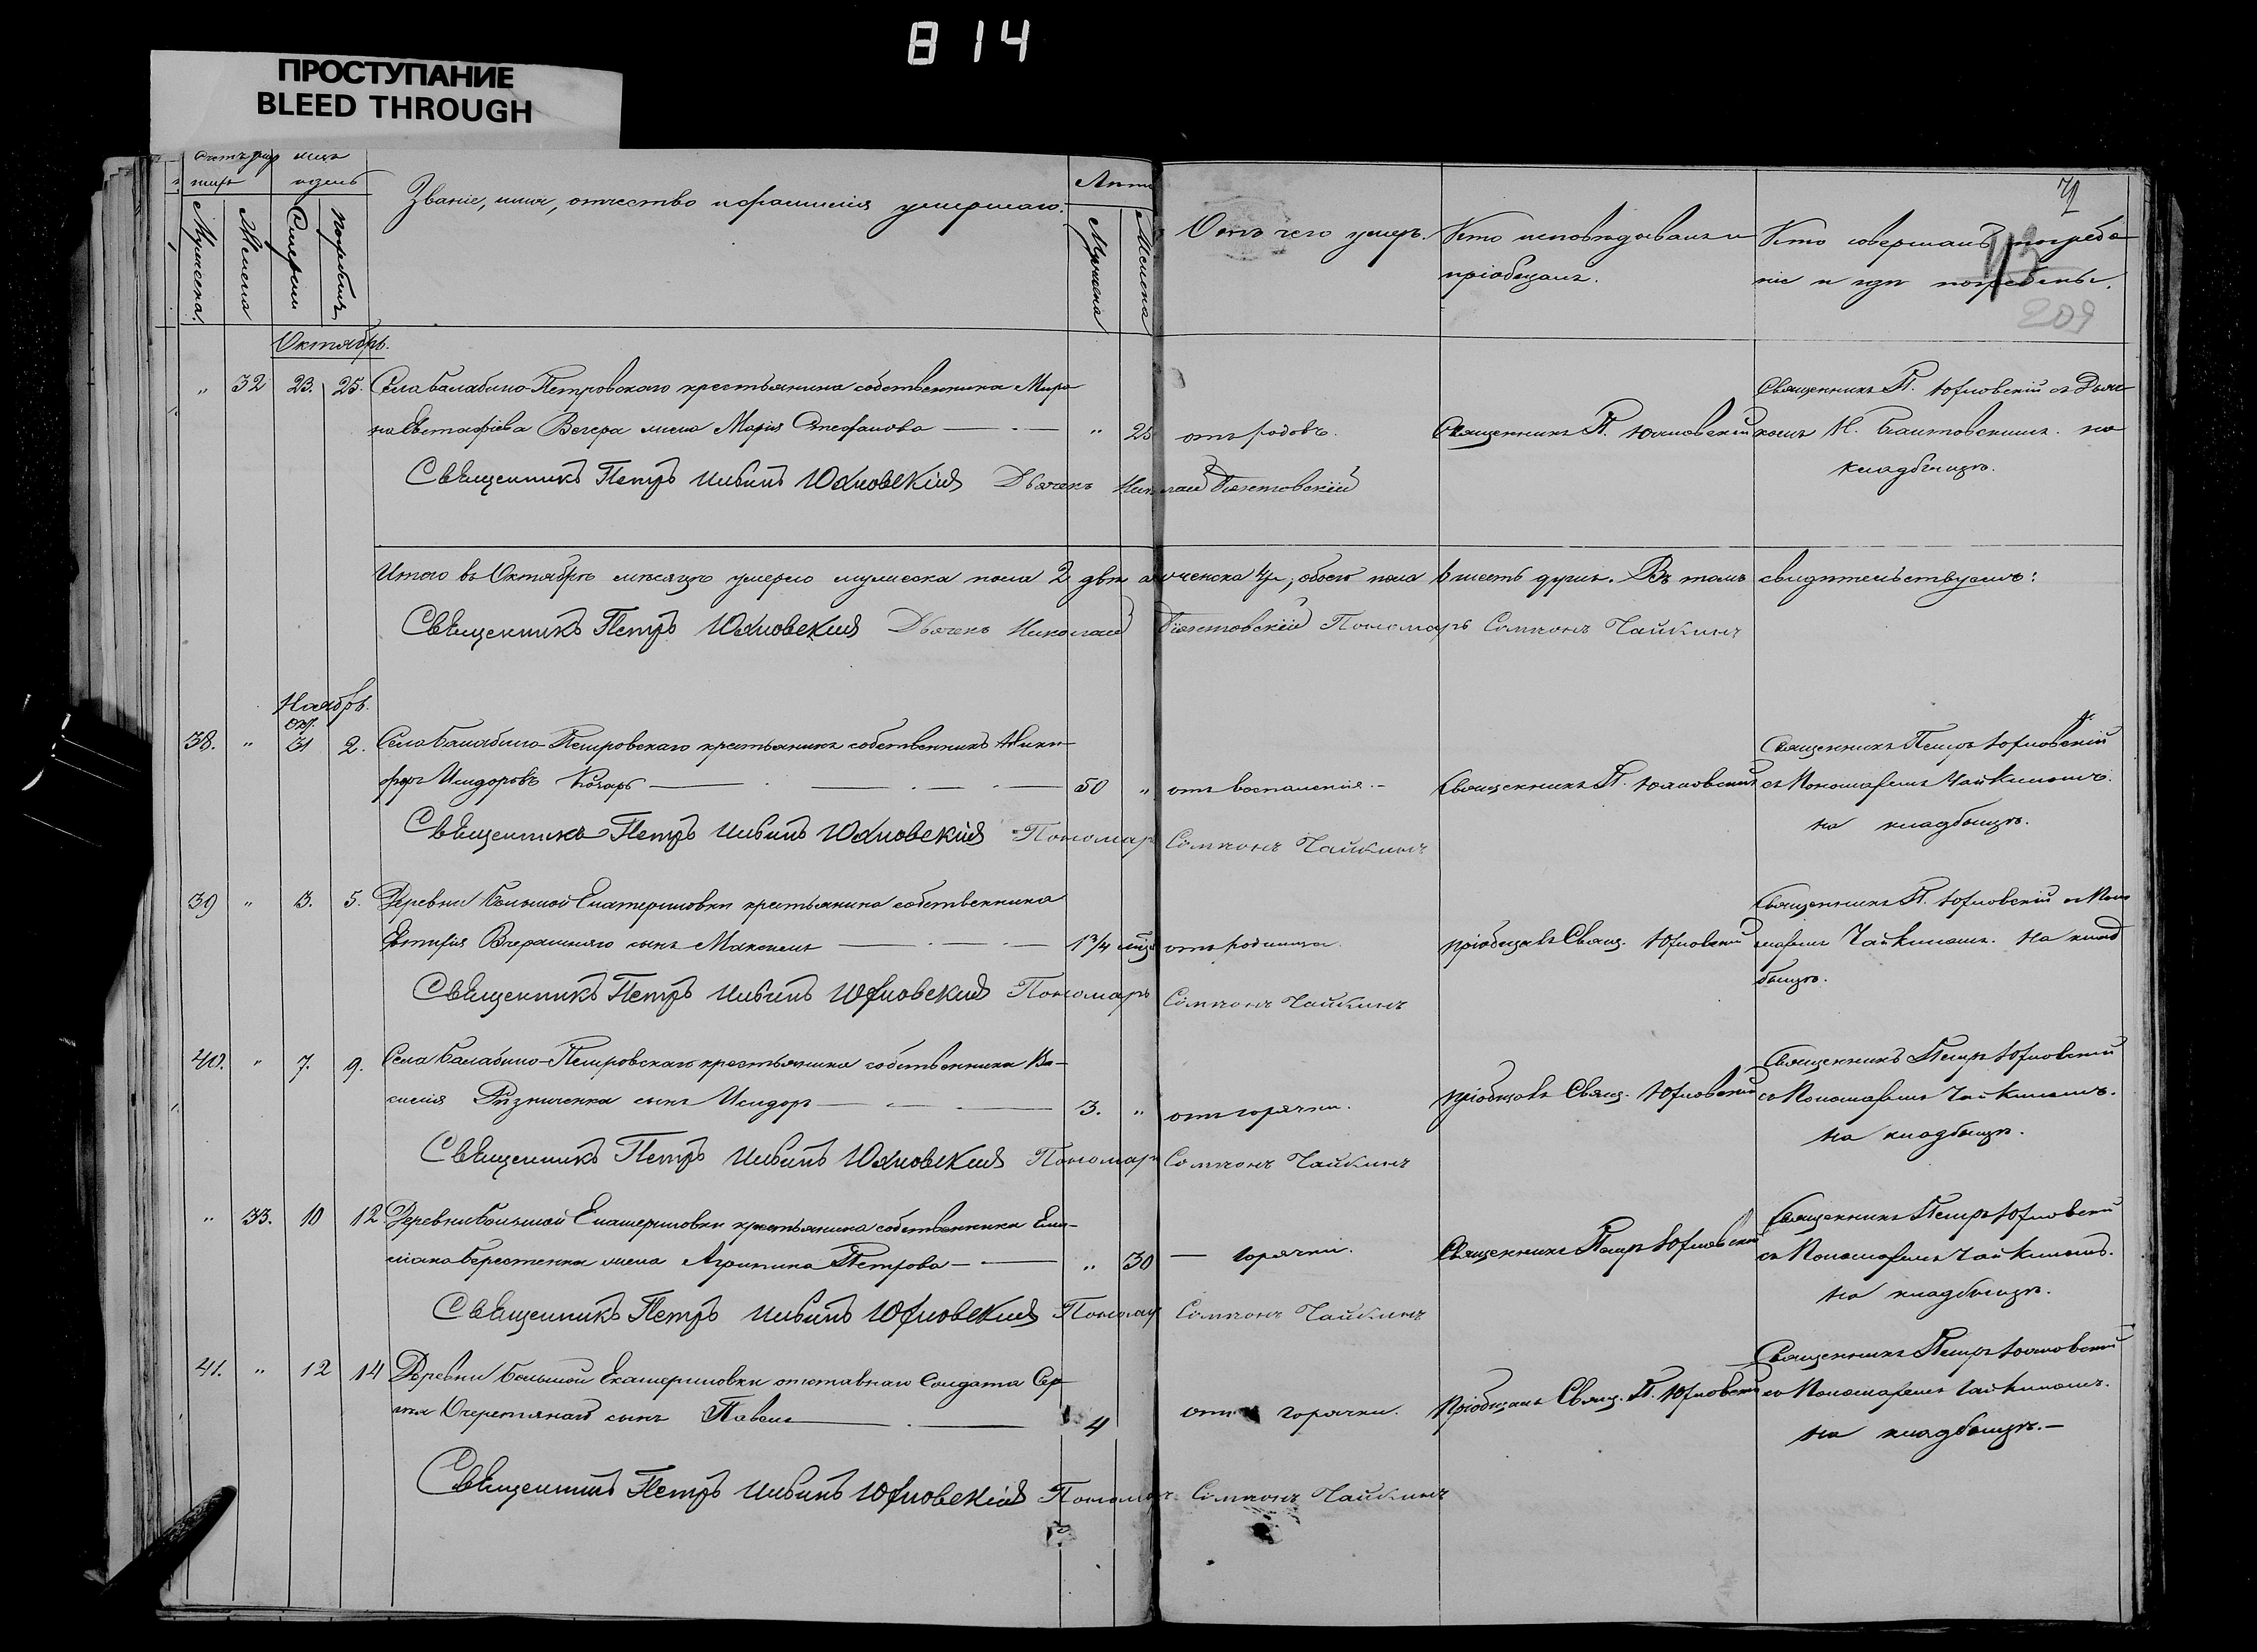 814
ПРОСТУПАНИЕ
BLEED THROUGH
Счетъ умер мѣс
шихъ и день
Званіе, имя, отчество и фамилія умершаго.
Лѣта
Мужеска.
Женска
Смерти
Погребенія
Мужеска
Женска
Отъ чего умеръ.
Кто исповѣдывалъ и
пріобщалъ.
Кто совершалъ погребе
ніе и гдѣ погребены.
209
Октябрь.
" 32 23. 25. Села Балабино-Петровскаго крестьянина собственника Миро
на Евстафіева Вечера жена Марія Стефанова " 25 отъ родовъ. Священникъ П. Юхновскій
Священникъ П. Юхновскій съ Дьяч
комъ Н. на
кладбищѣ.
Священникъ Петръ Юхновскій Дьячекъ Николай
Итого въ Октябрѣ мѣсяцѣ умерло мужеска пола 2 двѣ а женска 4, обоего пола 6 шесть душъ. Въ томъ свидѣтельствуемъ:
Священникъ Петръ Юхновскій Дьячекъ Николай Пономарь Сампсонъ Чайкинъ
Ноябрь.
окт.
38. " 31 2. Села Балабино-Петровскаго крестьянинъ собственникъ Ники
форъ Исидоровъ Кочарь 50 " отъ воспаленія. Священникъ П. Юхновскій
Священникъ Петръ Юхновскій
съ Пономаремъ Чайкинымъ.
на кладбищѣ.
Священникъ Петръ Юхновскій Пономарь Сампсонъ Чайкинъ
39 " 3. 5. Деревни Большой Екатериновки крестьянина собственника
Евтифія Вчерашняго сынъ Максимъ 1 3/4 отъ родимца. пріобщалъ Свящ. Юхновскій
Священникъ П. Юхновскій съ Поно
маремъ Чайкинымъ. На клад
бищѣ.
Священникъ Петръ Юхновскій Пономарь Сампсонъ Чайкинъ
40. " 7. 9. Села Балабино-Петровскаго крестьянина собственника Ва-
силія Рѣзниченка сынъ Исидоръ 3. " отъ горячки. пріобщалъ Свящ. Юхновскій
Священникъ Петръ Юхновскій
съ Пономаремъ Чайкинымъ.
на кладбищѣ.
Священникъ Петръ Юхновскій Пономарь Сампсонъ Чайкинъ
" 33. 10 12 Деревни Большой Екатериновки крестьянина собственника Еме-
ліана Берестенка жена Агрипина Петрова " 30 — горячки. Священникъ Петръ Юхновскій
Священникъ Петръ Юхновскій
съ Пономаремъ Чайкинымъ.
на кладбищѣ.
Священникъ Петръ Юхновскій Пономарь Сампсонъ Чайкинъ
41. " 12 14 Деревни Большой Екатериновки отставнаго Солдата Сер
гія Очеретянаго сынъ Павелъ 4 отъ горячки. пріобщалъ Свящ. П. Юхновскій
Священникъ Петръ Юхновскій
съ Пономаремъ Чайкинымъ.
на кладбищѣ.—
Священникъ Петръ Юхновскій Пономарь Сампсонъ Чайкинъ